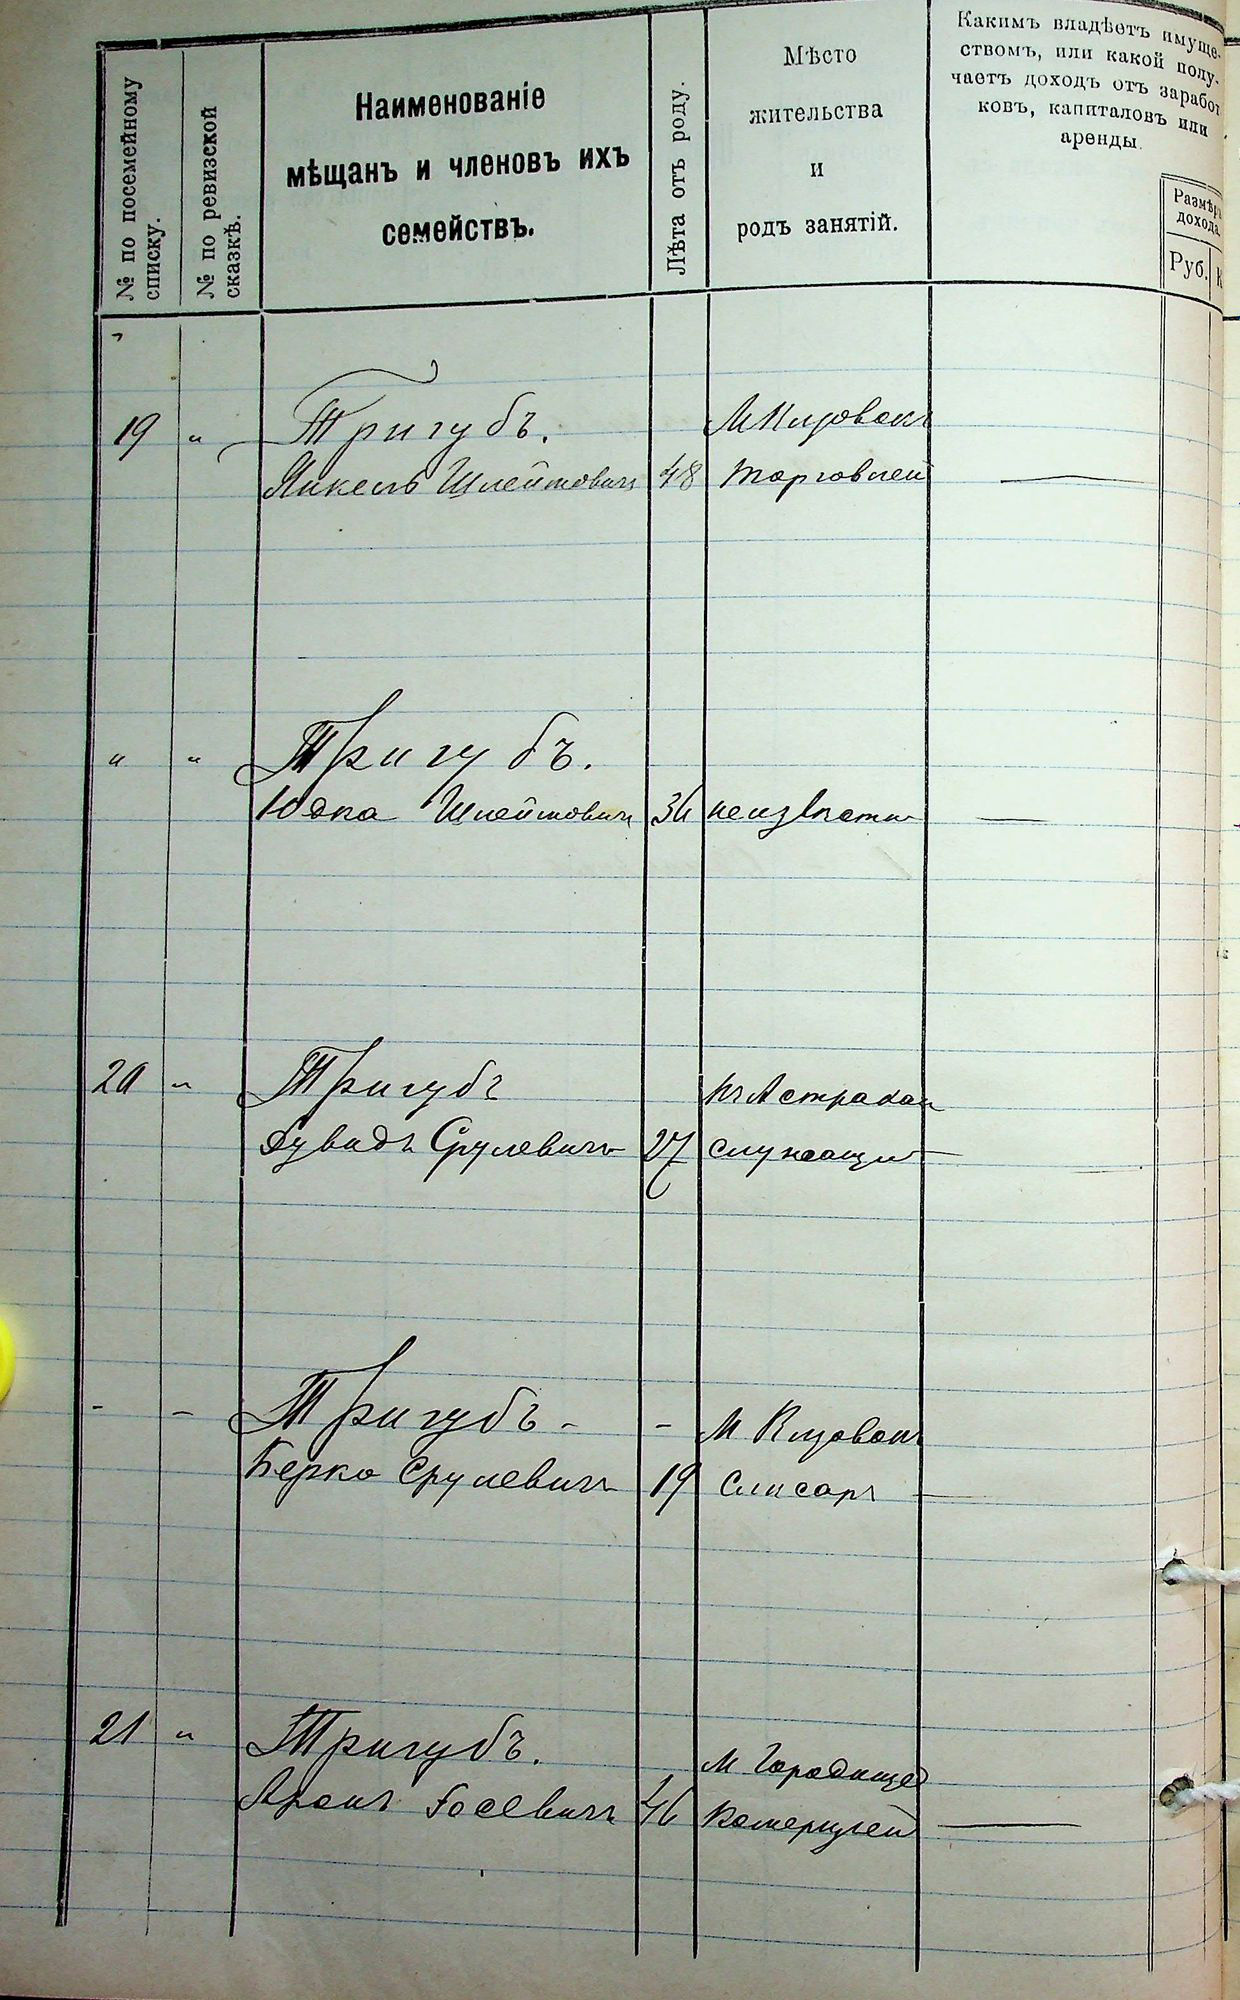 № по посемейному
списку.
№ по ревизской
сказкѣ.
Наименованіе
мѣщанъ и членовъ ихъ
семействъ.
Лѣта отъ роду.
Мѣсто
жительства
и
родъ занятій.
Какимъ владѣетъ имуще-
ствомъ, или какой полу-
чаетъ доходъ отъ заработ
ковъ, капиталовъ или
аренды.
Размѣръ
дохода.
Руб.
19 " Тригубъ.
Янкель Шлеймовичъ 48 Торговлей
" " Тригубъ.
Юдка Шлеймовичъ 36 неизвѣстно
20 " Тригубъ
Дувидъ Срулевичъ 27 служащій
- - Тригубъ - -
Берко Срулевичъ 19 слисарь
21 " Тригубъ. м Городище
Аронъ Іосевичъ 46 Комерцией